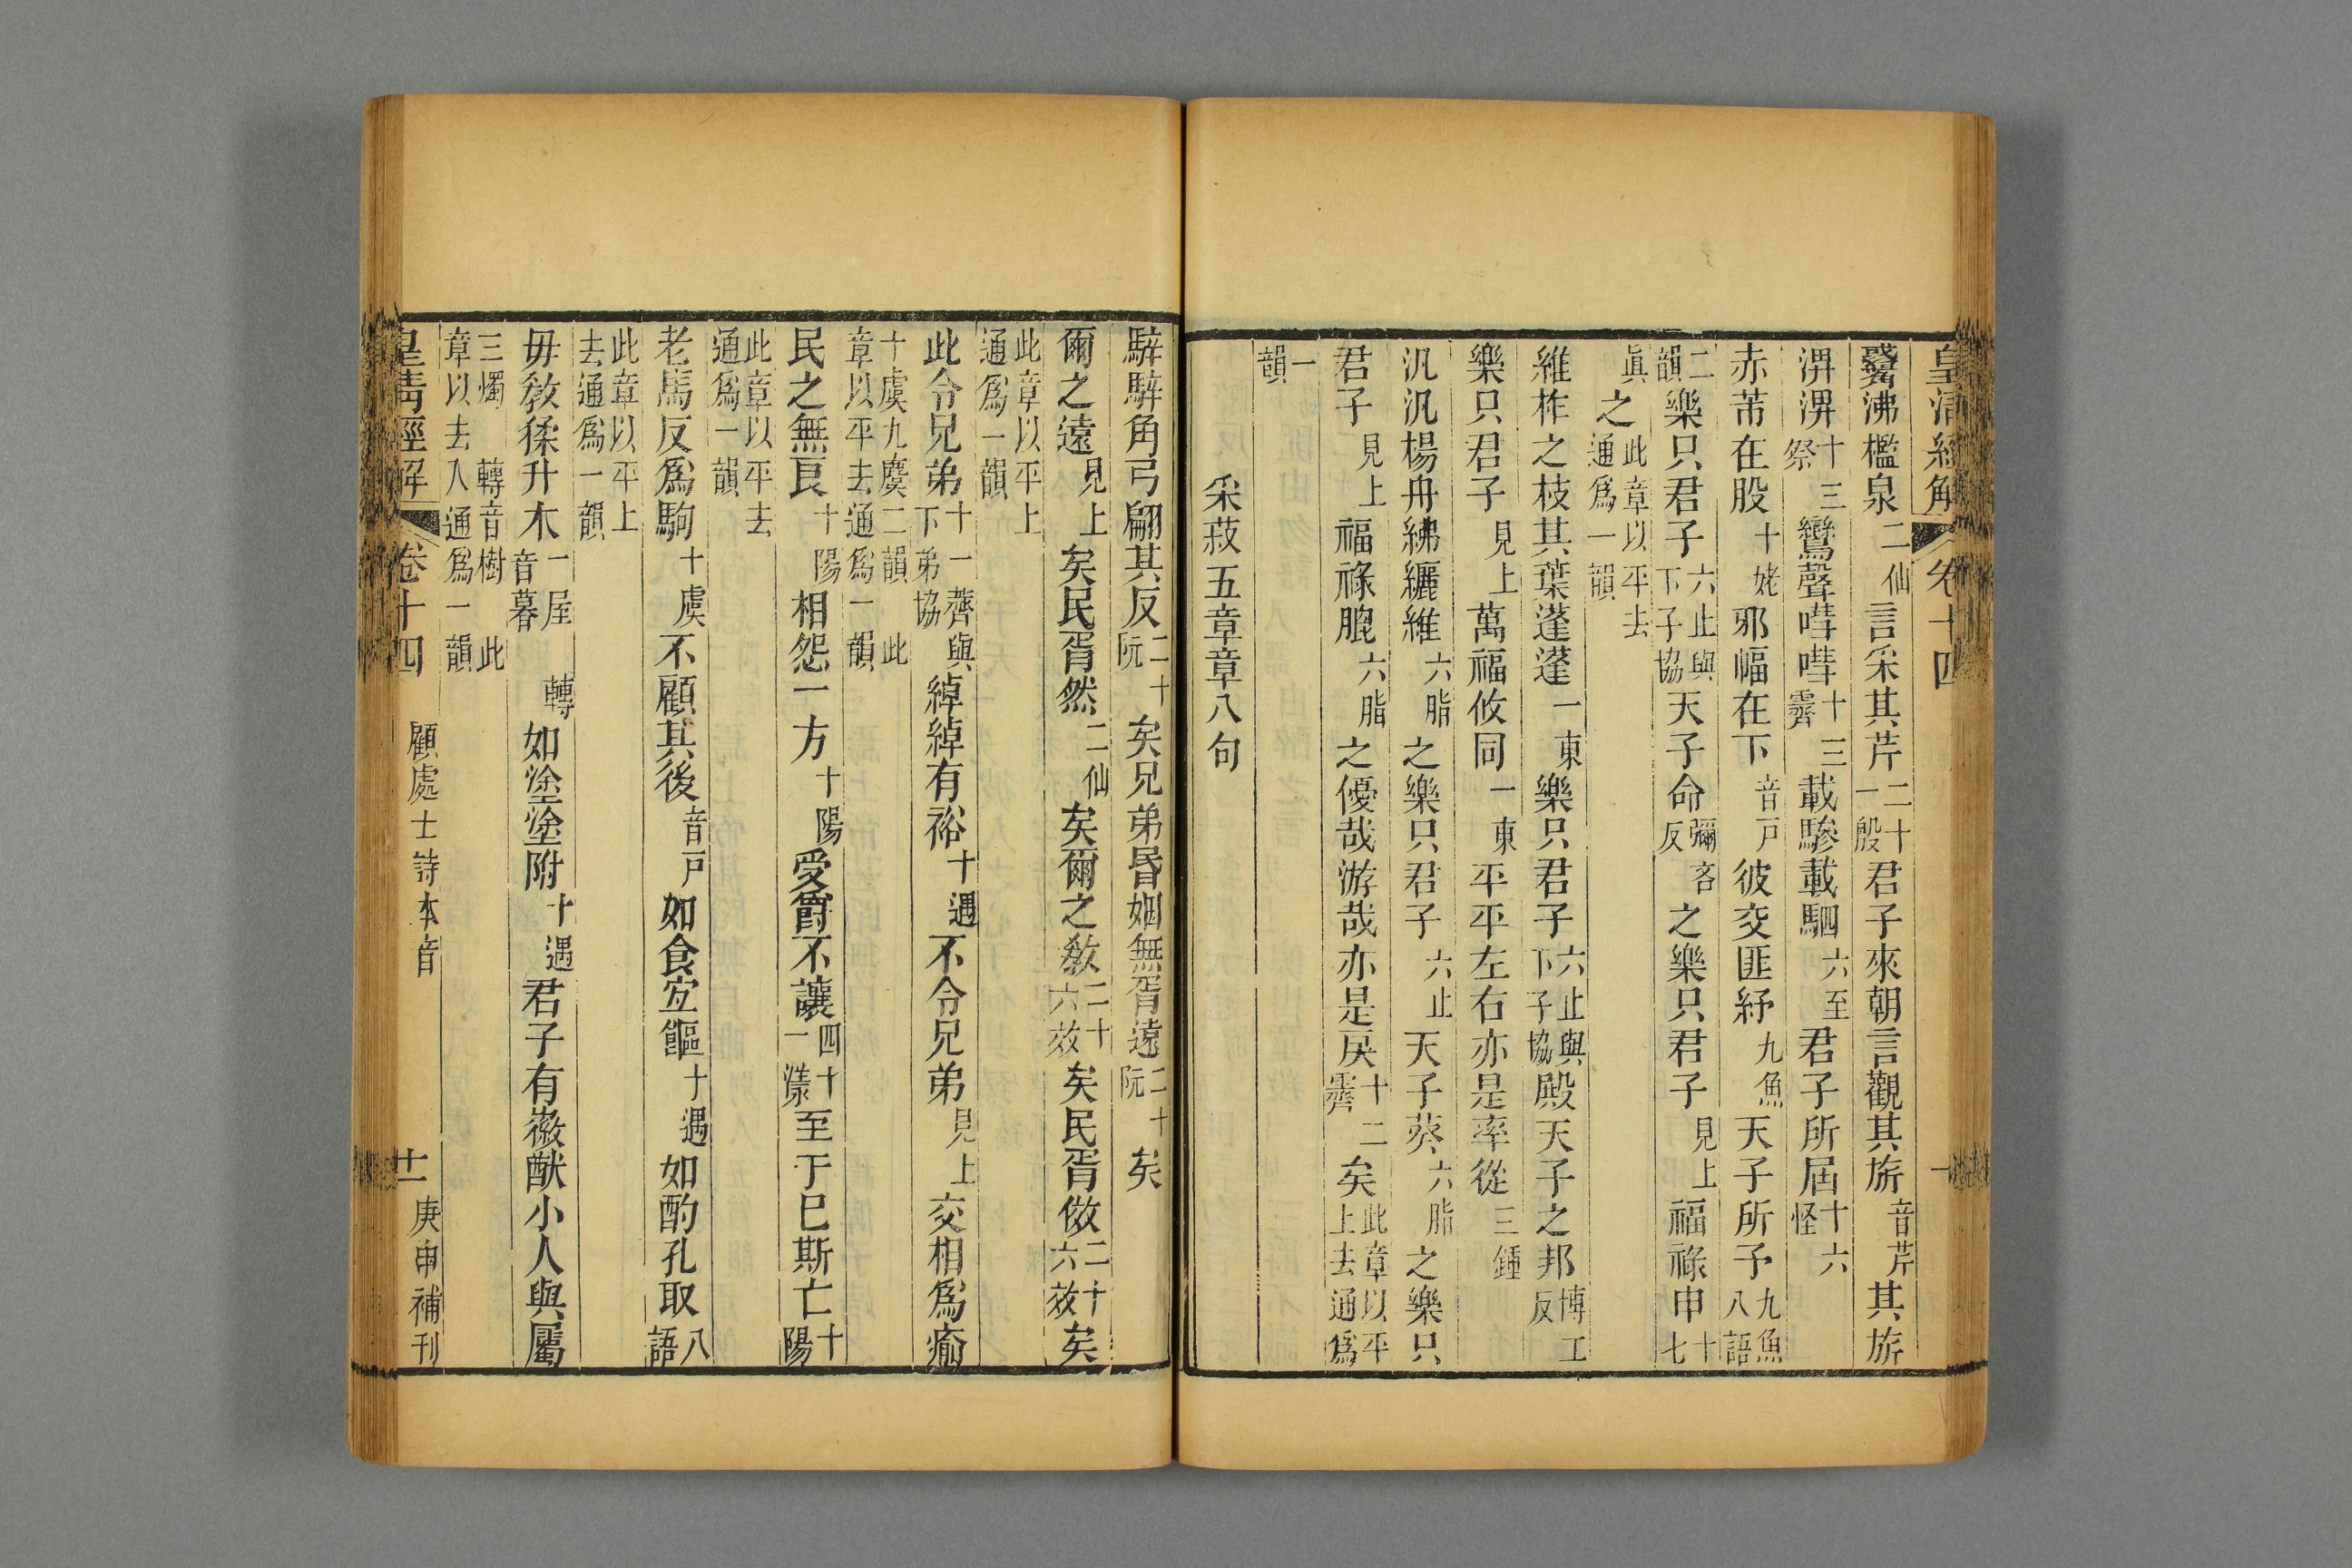 皇清經解 卷十四
觱沸檻泉二仙言采其芹二十一殷君子來朝言觀其旂音芹其旂
淠淠十三祭鸞聲嘒嘒十三霽載驂載駟六至君子所屆十六怪
赤芾在股十姥邪幅在下音戸彼交匪紓九魚天子所予九魚八語
二韻樂只君子六止與下子協天子命彌吝反之樂只君子見上福祿申十七
眞之此章以平去通爲一韻
維柞之枝其葉蓬蓬一東樂只君子六止與下子協殿天子之邦博工反
樂只君子見上萬福攸同一東平平左右亦是率從三鍾
汎汎楊舟紼纚維六脂之樂只君子六止天子葵六脂之樂只
君子見上福祿膍六脂之優哉游哉亦是戾十二霽矣此章以平上去通爲
一韻
采菽五章章八句
騂騂角弓翩其反二十阮矣兄弟昬姻無胥遠二十阮矣
爾之遠見上矣民胥然二仙矣爾之敎二十六效矣民胥傚二十六效矣
此章以平上通爲一韻
此令兄弟十一薺與下弟協綽綽有裕十遇不令兄弟見上交相爲瘉
十虞九麌二韻此章以平去通爲一韻
民之無良十陽相怨一方十陽受爵不讓四十一漾至于已斯亡十陽
此章以平去通爲一韻
老馬反爲駒十虞不顧其後音戸如食宜饇十遇如酌孔取八語
此章以平上去通爲一韻
毋敎猱升木一屋轉音暮如塗塗附十遇君子有徽猷小人與屬
三燭轉音樹此章以去入通爲一韻
皇淸經解 卷十四 顧處士詩本音 十一 庚申補刊